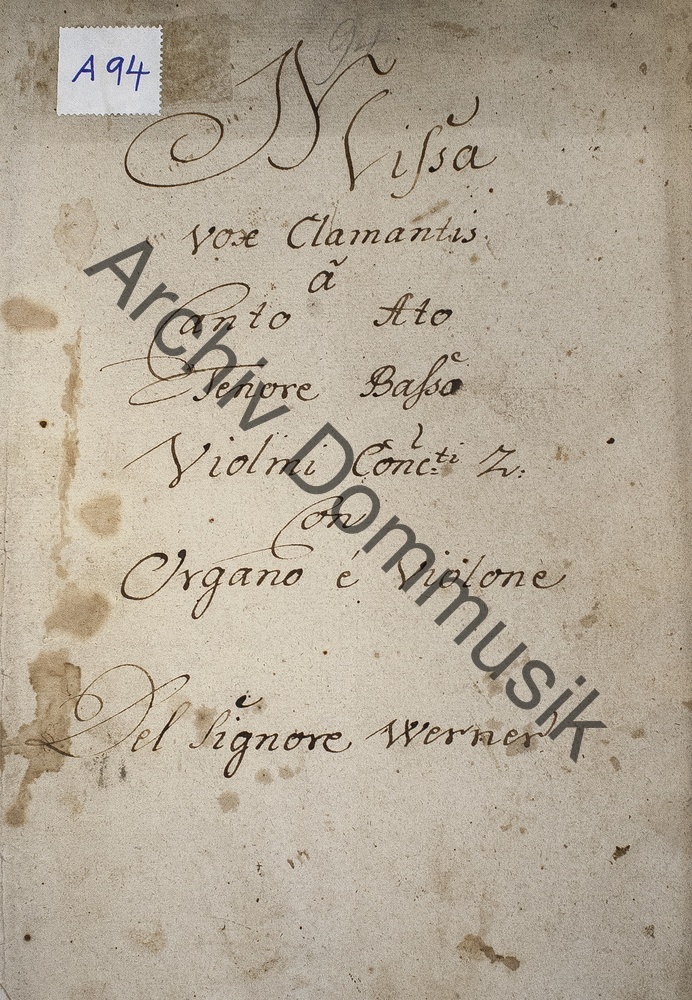 94
A 94
Missa
Vox Clamantis
â
Canto Alto
Tenore Basso
Violini Conc:ti 2:
Con
Organo é Violone
Del Signore Werner
Archiv Dommusik